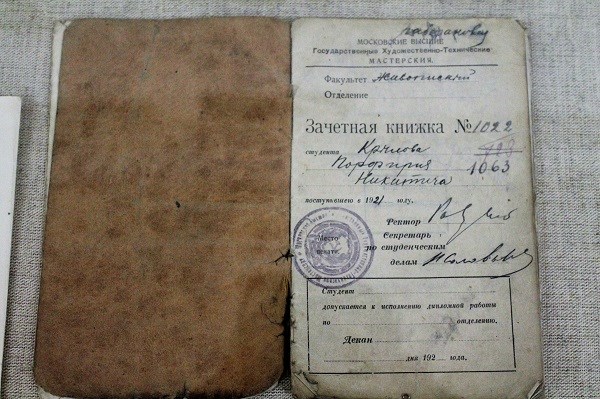 МОСКОВСКИЕ ВЫСШИЕ
Государственные Художественно-Технические
МАСТЕРСКИЯ.
Факультет Живописный
Отделение
Зачетная книжка № 1022
студента Крылова
Порфирия 1063
Никитича
поступившаго в 1921 году.
Ректор
Секретарь
по студенческим
делам
Место
печати
Студент
допускается к исполнению дипломной работы
по отделению.
Декан
дня 192 года.